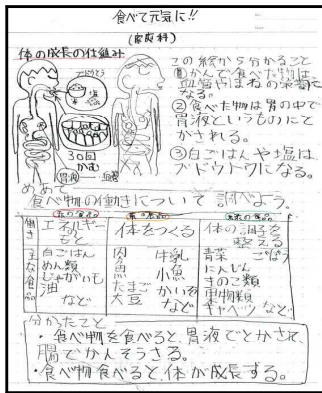 食べて元気に!!
(家庭科)
体の成長の仕組み
この絵から分かること
①かんで食べた物は
血管やほねの栄養に
なる。
②食べた物は胃の中で
胃液というものにと
かされる。
③白ごはんや塩は
ブドウトウになる。
30回
かむ
胃液
めあて
食べ物の働きについて調べよう。
働き
エネルギー
もと
体をつくる
体の調子を
整える
主な食品
白ごはん
めん類
じゃがいも
油
など
肉 牛乳
魚 小魚
たまご かいそう
大豆 など
青菜 ごぼう
にんじん
きのこ類
果物類
キャベツ など
分かったこと
・食べ物を食べると、胃液でとかされ、
腸でかんそうさる。
・食べ物食べると、体が成長する。